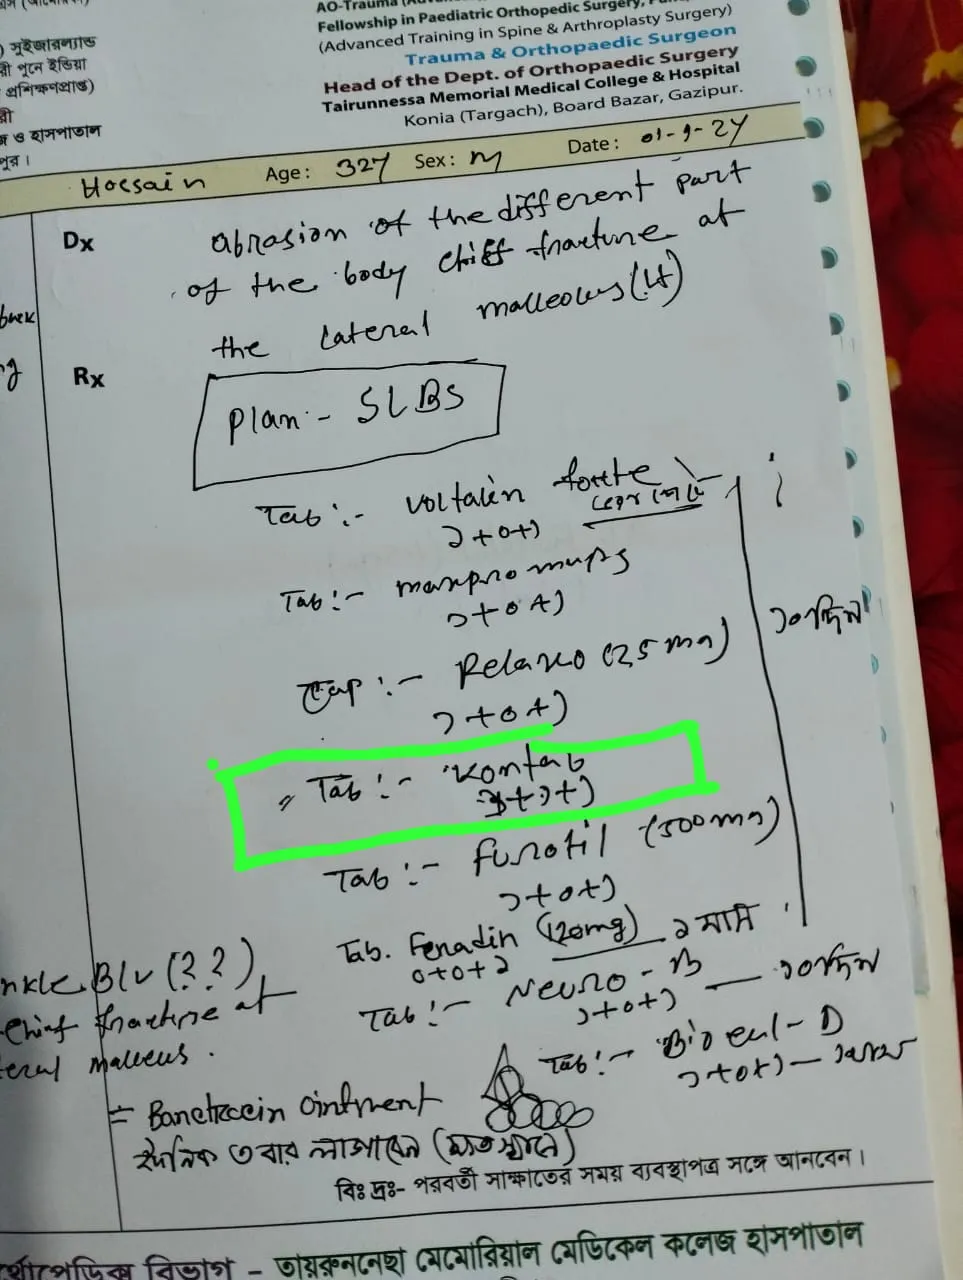 AO-Trauma
Fellowship in Paediatric Orthopedic Surgery,
(Advanced Training in Spine & Arthroplasty Surgery)
Trauma & Orthopaedic Surgeon
Head of the Dept. of Orthopaedic Surgery
Tairunnessa Memorial Medical College & Hospital
Konia (Targach), Board Bazar, Gazipur.
) সুইজারল্যান্ড
রী পুনে ইন্ডিয়া
প্রশিক্ষণপ্রাপ্ত)
রী
জ ও হাসপাতাল
পুর।
Hossain Age: 32y Sex: M Date: 01-9-24
Dx
abrasion of the different part
of the body chiff fracture at
the lateral malleolus (Lt)
Rx
Plan:- SLBS
Tab:- Voltalin forte
১+০+১
Tab:- maxpro mups
১+০+১
১০ দিন
Cap:- Relaxo (25 mg)
১+০+১
Tab:- Kontab
১+১+১
Tab:- Furotil (500mg)
১+০+১
Tab. Fenadin (120mg) ১ মাস
0+0+১
Tab:- Neuro-B — ১০ দিন
১+০+১
Tab:- Biocal-D
১+০+১ —
nkle B/v (??),
chif fracture at
eral malleus.
= Banetracin ointment
দৈনিক ৩ বার লাগাবেন (ক্ষত স্থানে)
বিঃ দ্রঃ- পরবর্তী সাক্ষাতের সময় ব্যবস্থাপত্র সঙ্গে আনবেন।
র্থোপেডিক্স বিভাগ - তায়রুননেছা মেমোরিয়াল মেডিকেল কলেজ হাসপাতাল